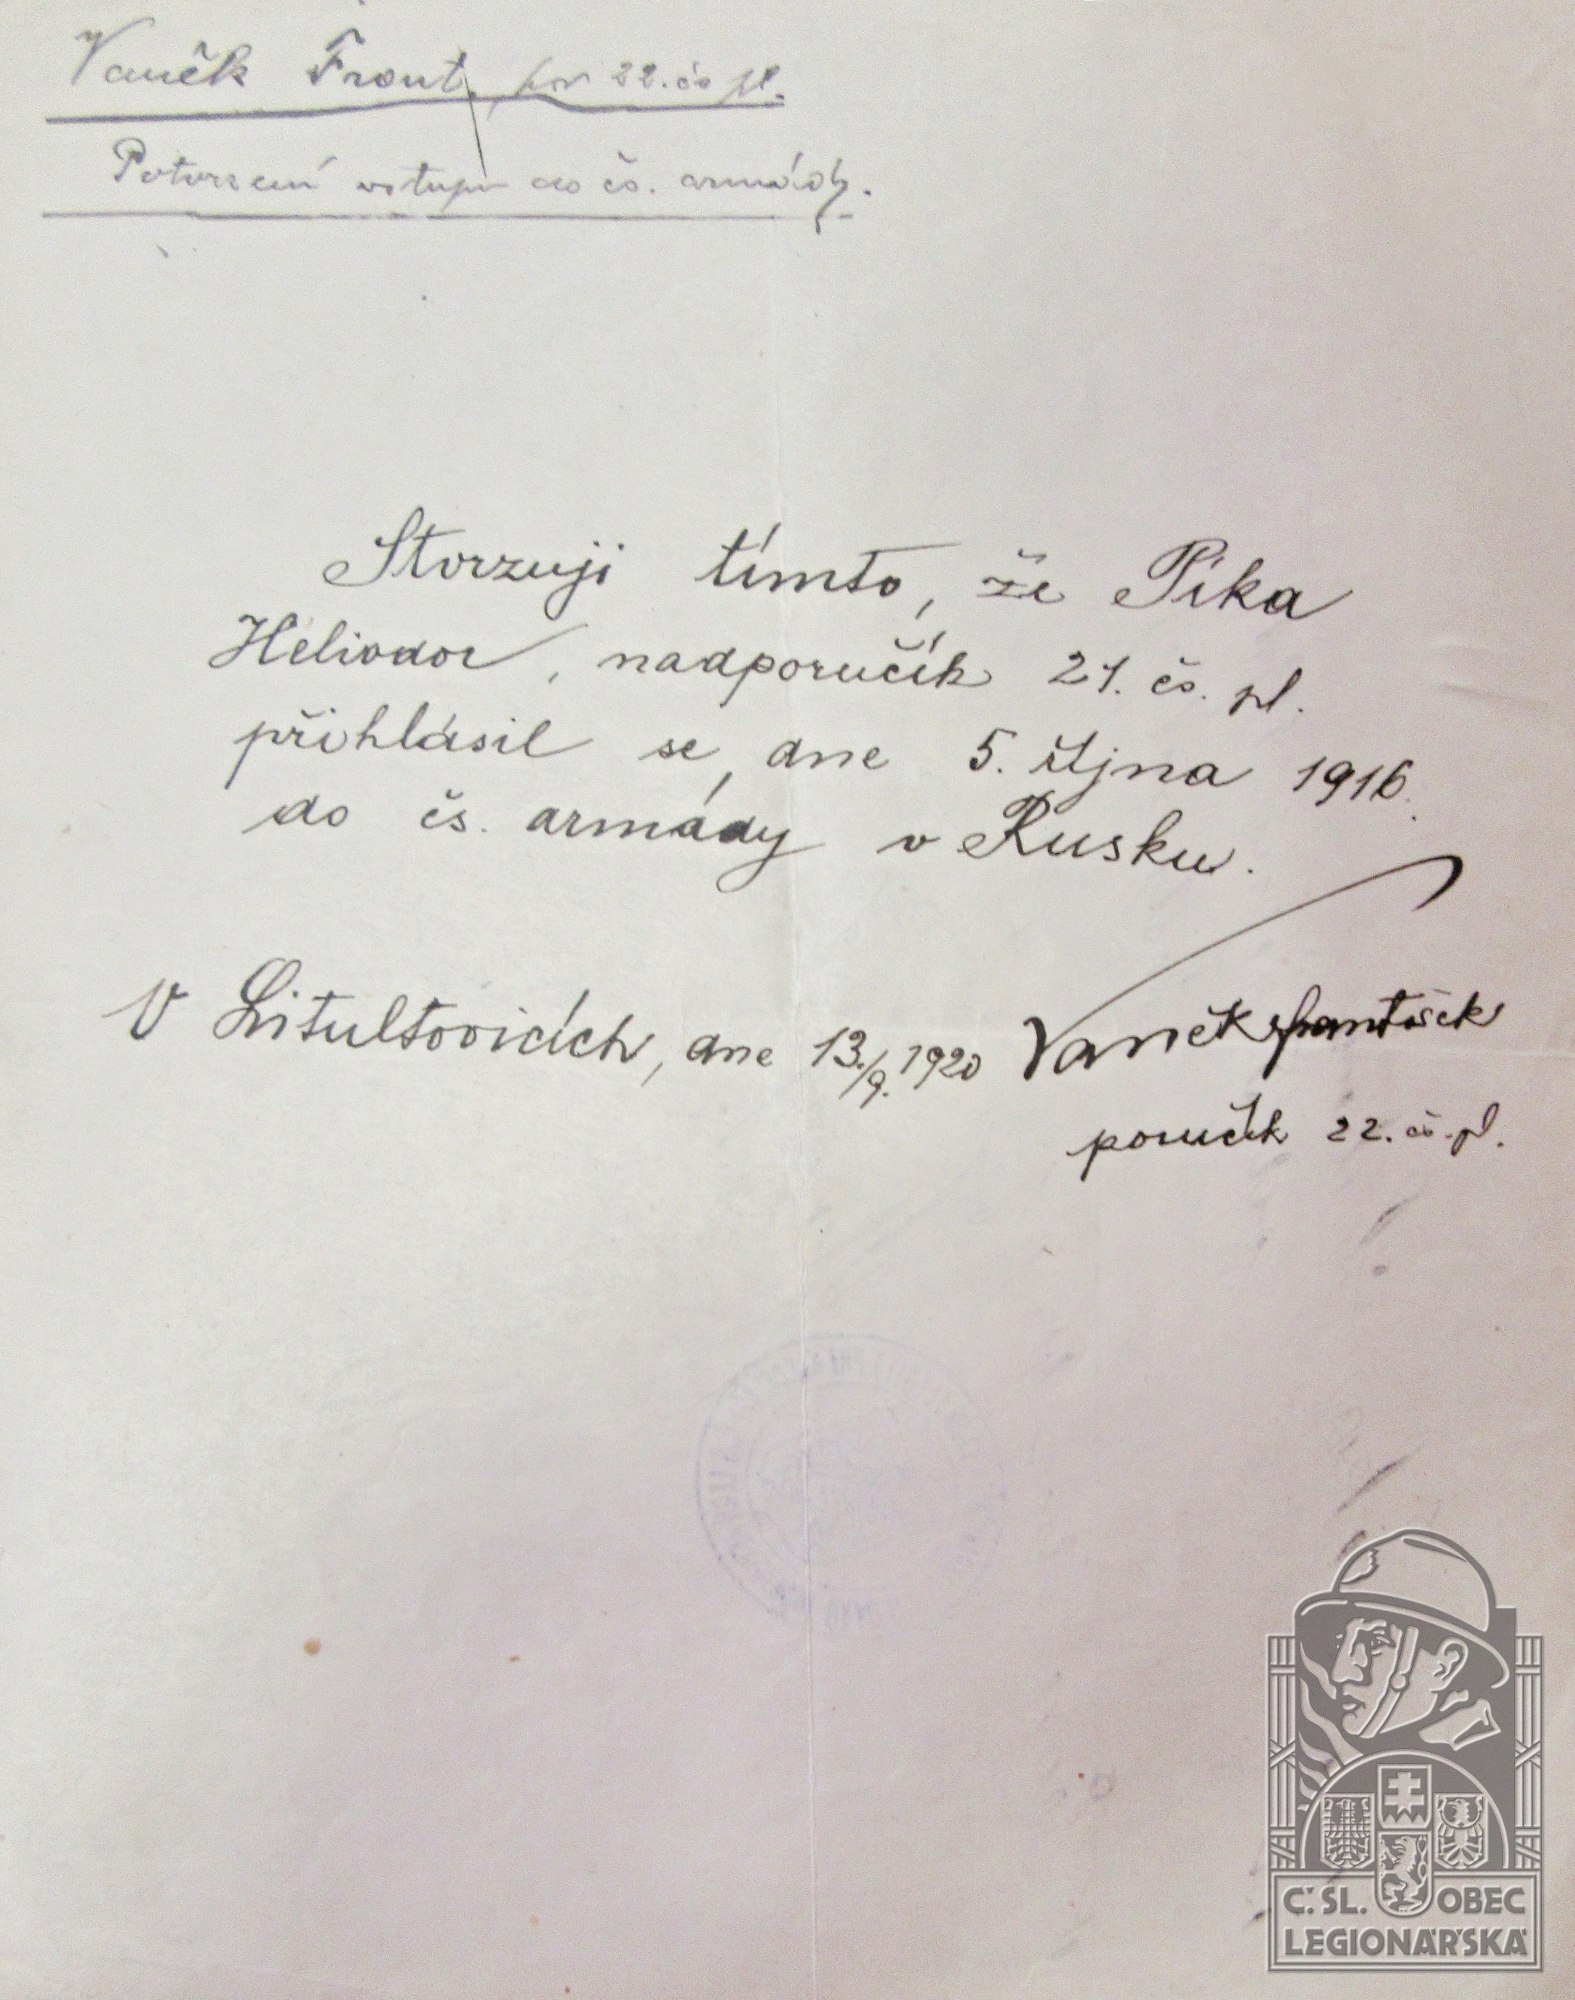 Vaněk Frant. por 22. čs pl.
Potvrzení vstupu do čs. armády.
Stvrzuji tímto, že Píka
Heliodor, nadporučík 21. čs. pl.
přihlásil se dne 5. října 1916.
do čs. armády v Rusku.
V Litultovicích, dne 13./9. 1920 Vaněk František
poručík 22. čs. pl.
Č.SL. OBEC
LEGIONÁŘSKÁ